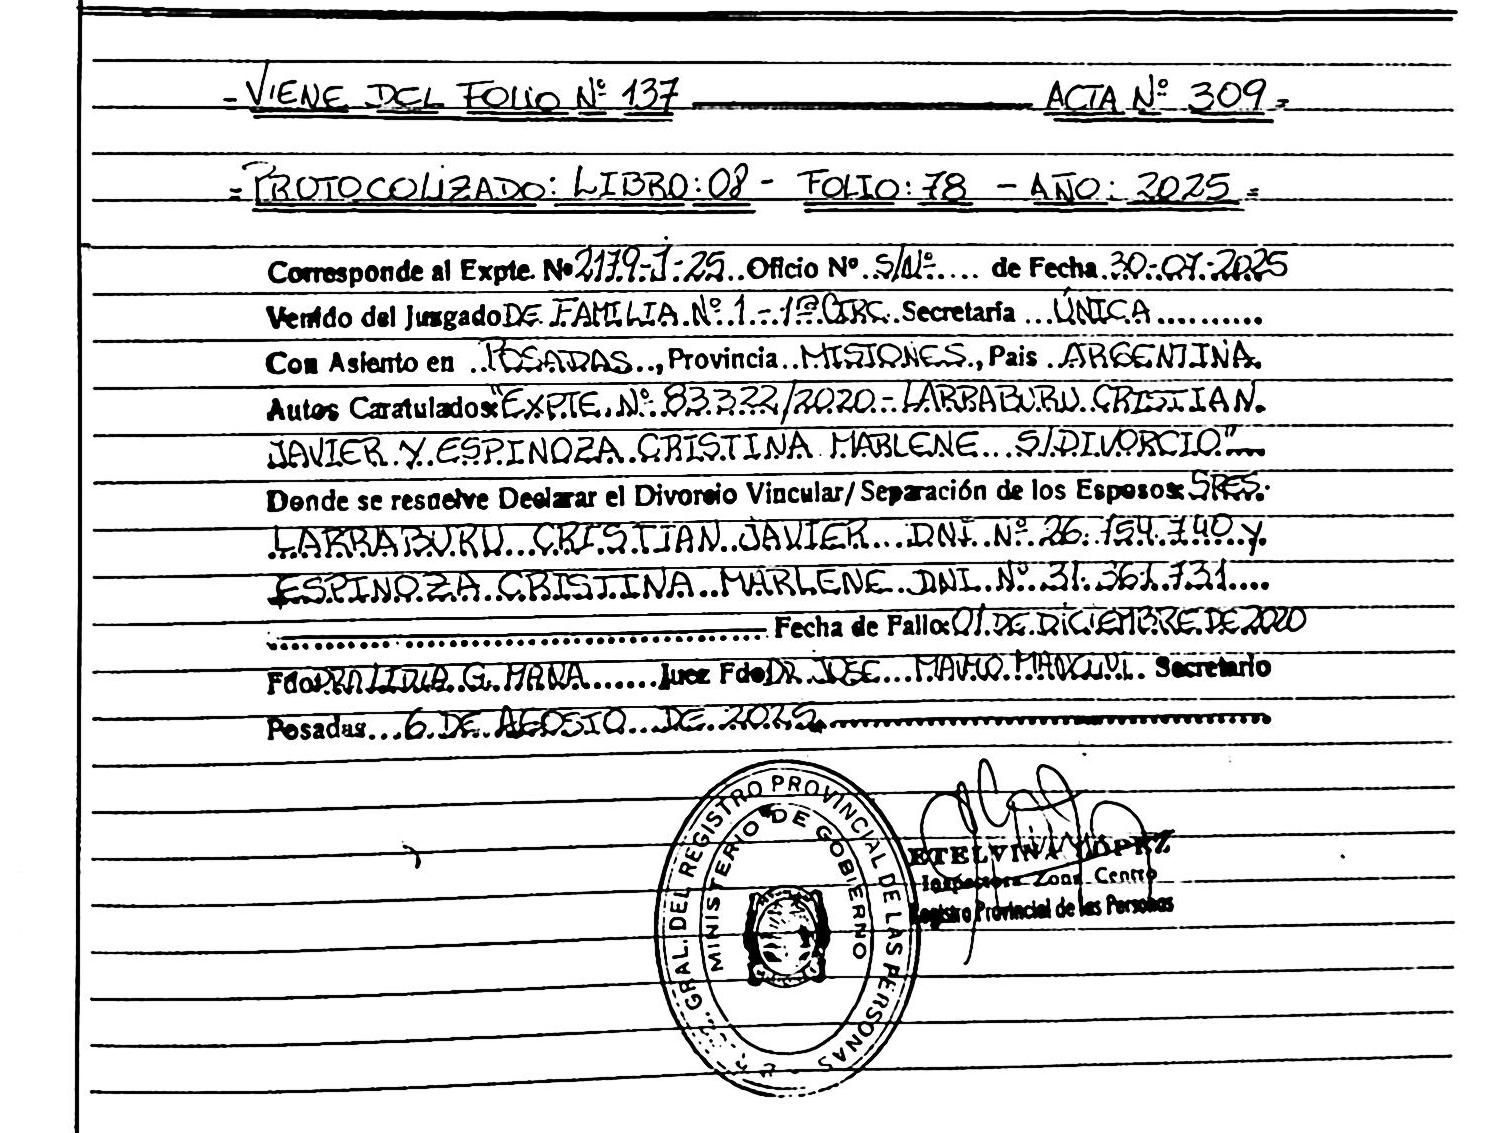 = VIENE DEL FOLIO Nº 137 ACTA Nº 309 =
= PROTOCOLIZADO: LIBRO: 08 - FOLIO: 78 - AÑO: 2025 =
Corresponde al Expte. Nº 2179-J-25.. Oficio Nº S/Nº.... de Fecha 30-07-2025
Venido del Juzgado DE FAMILIA Nº 1 - 1ª CIRC. Secretaría ...ÚNICA..........
Con Asiento en ..POSADAS.., Provincia ..MISIONES., Pais .ARGENTINA.
Autos Caratulados: "EXPTE. Nº 83322/2020 - LARRABURU CRISTIAN
JAVIER Y ESPINOZA CRISTINA MARLENE S/DIVORCIO"
Donde se resuelve Declarar el Divorcio Vincular/Separación de los Esposos: SRES.
LARRABURU CRISTIAN JAVIER DNI Nº 26.154.740 y
ESPINOZA CRISTINA MARLENE DNI Nº 31.361.731....
Fecha de Fallo: 01 DE DICIEMBRE DE 2020
Fdo: DRA G. Juez Fdo DR. JOSE Secretario
Posadas... 6 DE AGOSTO DE 2025
GRAL. DEL REGISTRO PROVINCIAL DE LAS PERSONAS
MINISTERIO DE GOBIERNO
ETELVINA LOPEZ
Inspectora Zona Centro
Registro Provincial de las Personas